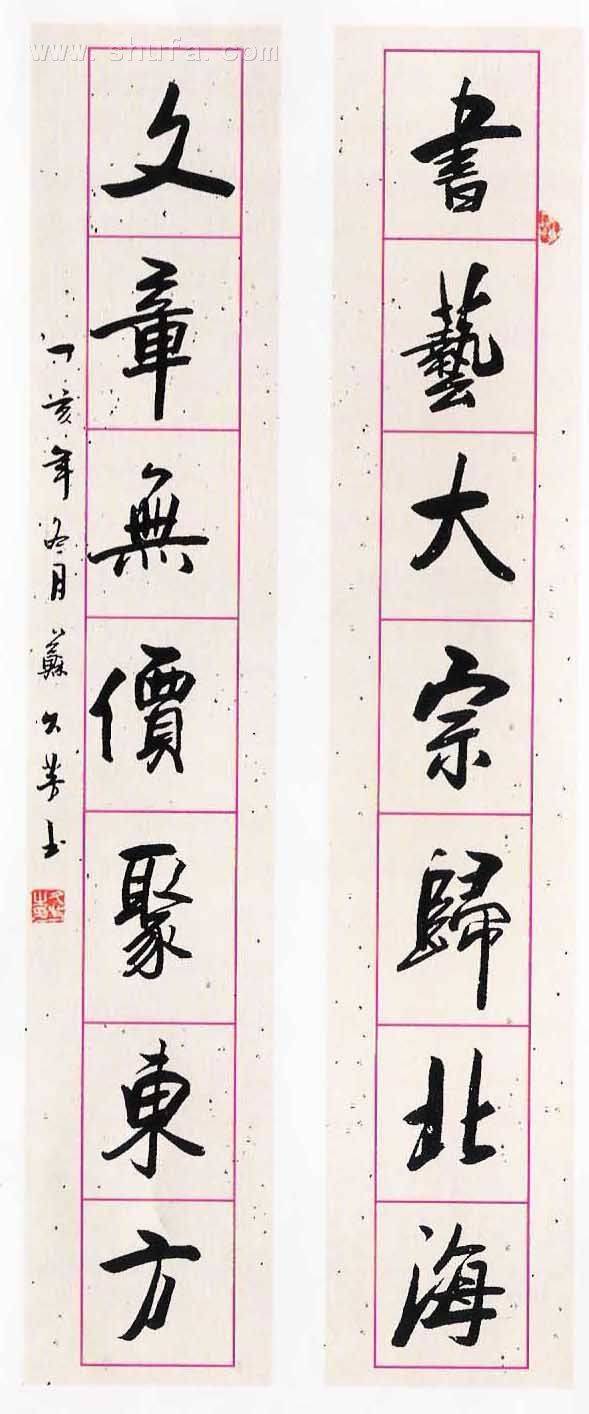 書藝大宗歸北海
文章無價聚東方
丁亥年冬月蘇公芳書
www.shufa.com